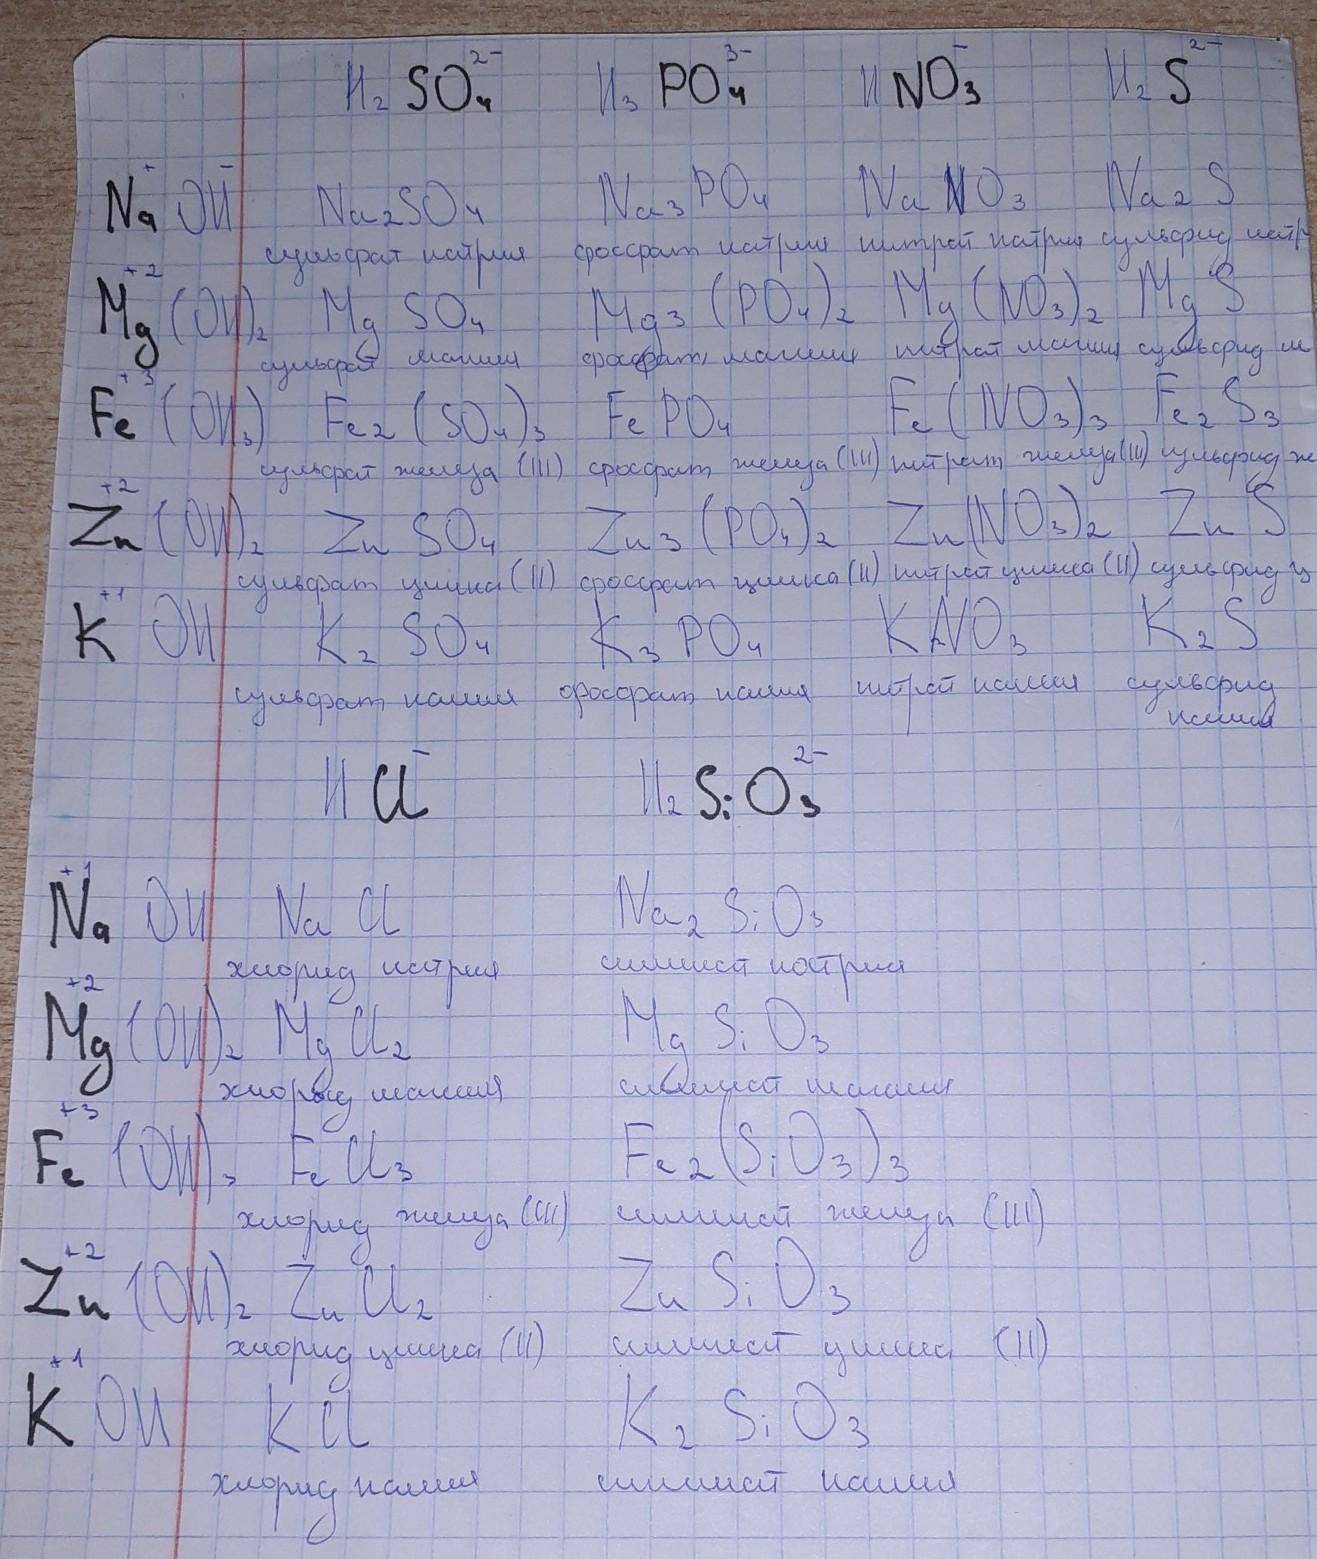 H₂ SO₄²⁻ H₃ PO₄³⁻ H NO₃⁻ H₂ S²⁻
Na⁺ OH⁻ Na₂SO₄ Na₃PO₄ NaNO₃ Na₂S
сульфат натрия фосфат натрия нитрат натрия сульфид натр
Mg⁺² (OH)₂ Mg SO₄ Mg₃ (PO₄)₂ Mg (NO₃)₂ Mg S
сульфат магния фосфат магния нитрат магния сульфид м
Fe⁺³ (OH₃) Fe₂ (SO₄)₃ Fe PO₄ Fe (NO₃)₃ Fe₂ S₃
сульфат железа (III) фосфат железа (III) нитрат железа (III) сульфид же
Zn⁺² (OH)₂ Zn SO₄ Zn₃ (PO₄)₂ Zn(NO₃)₂ Zn S
сульфат цинка (II) фосфат цинка (II) нитрат цинка (II) сульфид ц
K⁺¹ OH K₂ SO₄ K₃ PO₄ KNO₃ K₂ S
сульфат калия фосфат калия нитрат калия сульфид
калия
H Cl⁻ H₂ SiO₃²⁻
Na⁺¹ OH Na Cl Na₂ SiO₃
хлорид натрия силикат натрия
Mg⁺² (OH)₂ Mg Cl₂ Mg SiO₃
хлорид магния силикат магния
Fe⁺³ (OH)₃ Fe Cl₃ Fe₂ (SiO₃)₃
хлорид железа (III) силикат железа (III)
Zn⁺² (OH)₂ Zn Cl₂ Zn SiO₃
хлорид цинка (II) силикат цинка (II)
K⁺¹ OH K Cl K₂ SiO₃
хлорид калия силикат калия